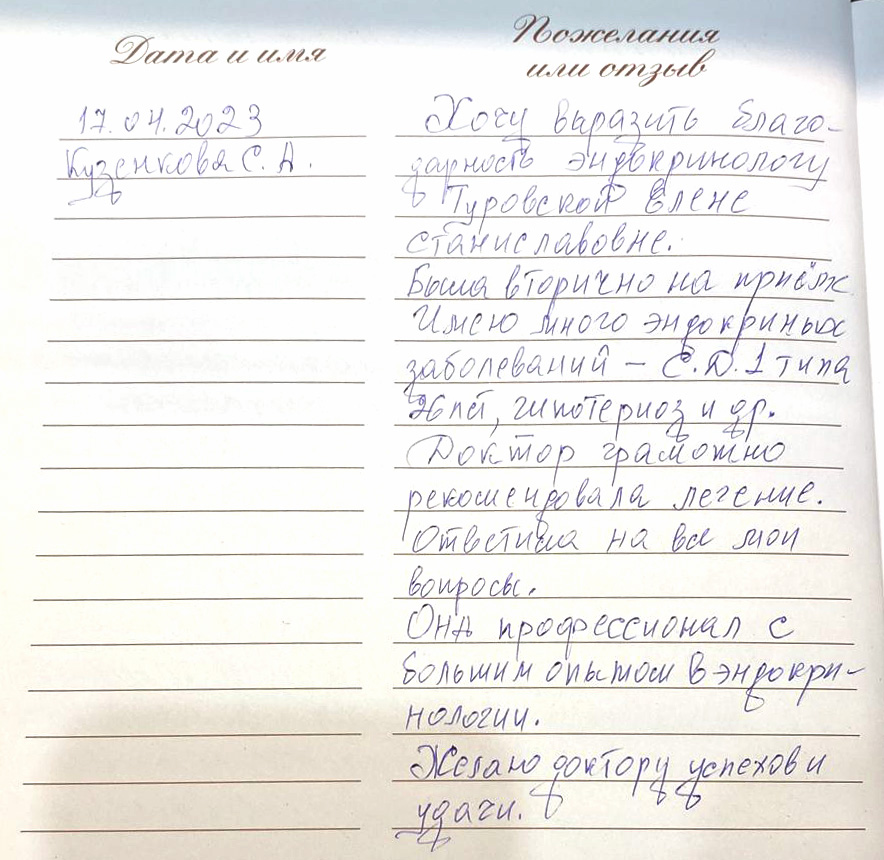 Дата и имя
Пожелания
или отзыв
17.04.2023
Кузенкова С. А.
Хочу выразить благо-
дарность эндокринологу
Туровской Елене
Станиславовне.
Была вторично на приёме
Имею много эндокриных
заболеваний – С.Д. 1 типа
26 лет, гипотериоз и др.
Доктор грамотно
рекомендовала лечение.
Ответила на все мои
вопросы.
Она профессионал с
большим опытом в эндокри-
нологии.
Желаю доктору успехов и
удачи.